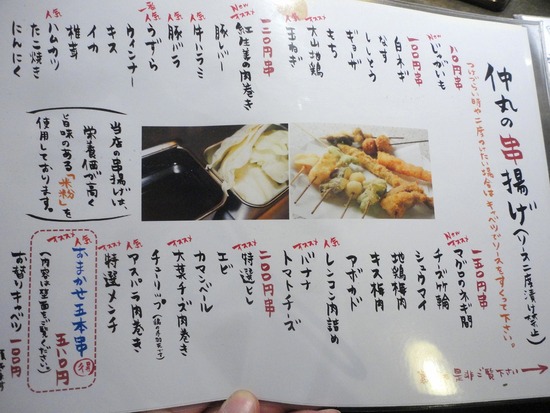 仲丸の串揚げ(ソース二度漬け禁止)
つけづらい時や二度づけたい場合はキャベツでソースをすくって下さい。
八〇円串
Newオススメ
じゃがいも
一〇〇円串
白ネギ
なす
ししとう
ギョーザ
もち
大山地鶏
人気
玉ねぎ
一三〇円串
Newオススメ
紅生姜の肉巻き
豚レバー
人気
牛ハラミ
人気
豚バラ
一番人気
うずら
ウィンナー
キス
イカ
椎茸
人気
ハムカツ
たこ焼き
にんにく
当店の串揚げは、
栄養価が高く
旨味のある「米粉」を
使用しております。
一五〇円串
Newオススメ
マグロのネギ間
チーズ竹輪
シュウマイ
地鶏梅肉
キス梅肉
アボカド
レンコン肉詰め
トマトチーズ
オススメ
バナナ
二〇〇円串
オススメ
特選ヒレ
エビ
カマンベール
オススメ
大葉チーズ肉巻き
チューリップ
人気
アスパラ肉巻き
オススメ
特選メンチ
オススメ
人気
おまかせ五本串
得
五八〇円
(内容は壁面をご覧ください)
お替りキャベツ 一〇〇円